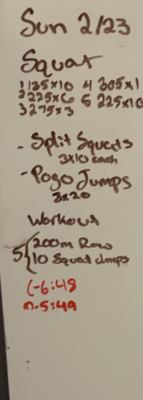 Sun 2/23
Squat
1 135x10 4 305x1
2 225x6 5 225x10
3 275x3
- Split Squats
3x10 each
- Pogo Jumps
3x20
Workout
5{ 200m Row
10 Squat Jumps
6:48
5:49